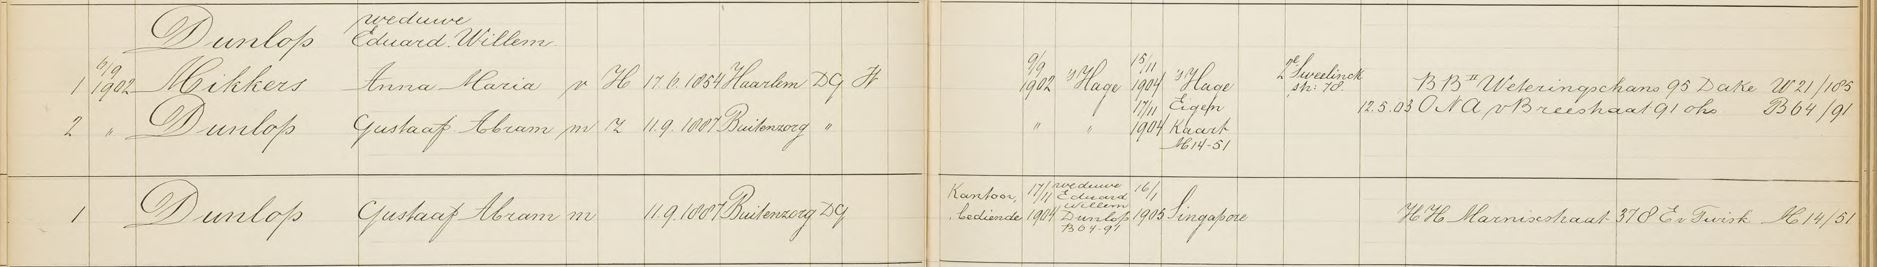 Dunlop weduwe
Eduard Willem
1 6/9 1902 Mikkers Anna Maria v H 17.6.1854 Haarlem DG H 9/9 1902 's Hage 15/11 1904 's Hage 2e Sweelinck str: 78. BB II Weteringschans 95 Dake W 21/185
12.5.03 ONA v Breestraat 91 ohs B 64/91
2 " Dunlop Gustaaf Abram m Z 11.9.1887 Buitenzorg " " " 17/11 1904 Eigen Kaart
M14-51
1 Dunlop Gustaaf Abram m 11.9.1887 Buitenzorg DG Kantoor, bediende 17/11 1904 weduwe Eduard Willem Dunlop B 64-91 16/1 1905 Singapore HH Marnixstraat 378 E v Twisk M 14/51